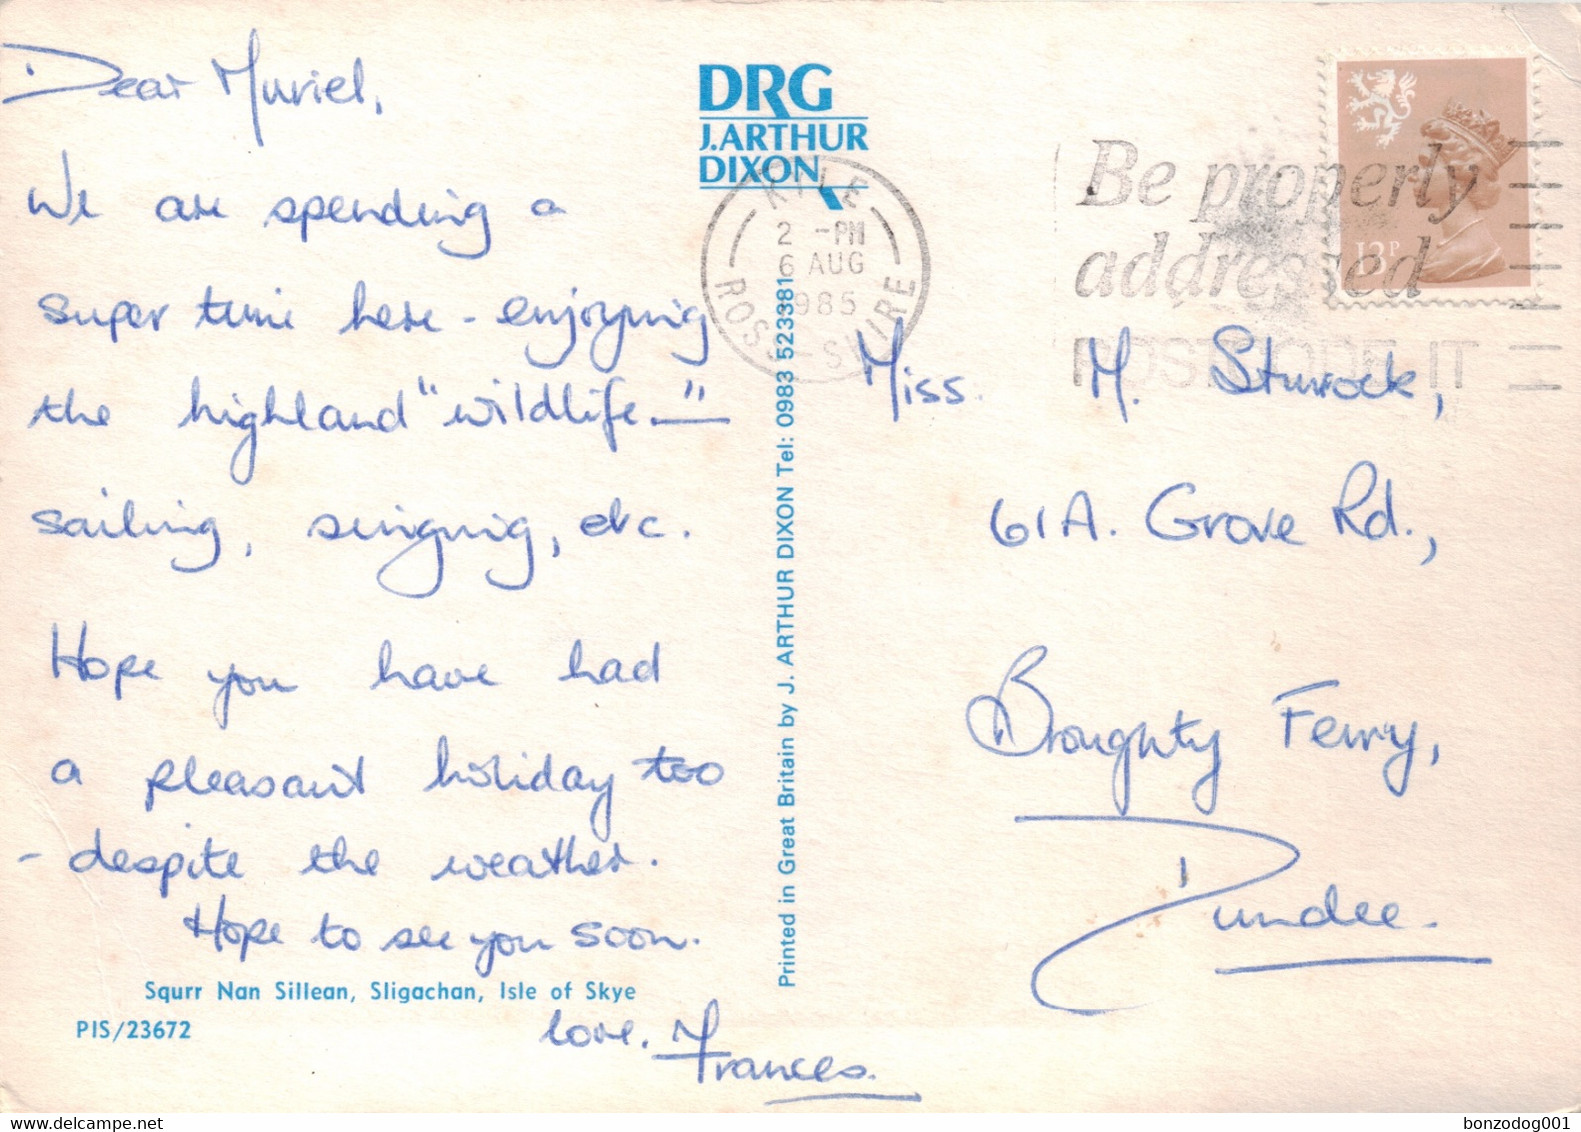 Dear Muriel,
We are spending a
super time here - enjoying
the highland "wildlife"
sailing, singing, etc.
Hope you have had
a pleasant holiday too
- despite the weather.
Hope to see you soon.
love, Frances.
Squrr Nan Sillean, Sligachan, Isle of Skye
PIS/23672
DRG
J.ARTHUR
DIXON
Printed in Great Britain by J. ARTHUR DIXON Tel: 0983 523381
KYLE
2 -PM
6 AUG
1985
ROSS-SHIRE
Be properly
addressed
POSTCODE IT
13P
Miss. M. Sturrock,
61A. Grove Rd.,
Broughty Ferry,
Dundee.
delcampe.net
bonzodog001